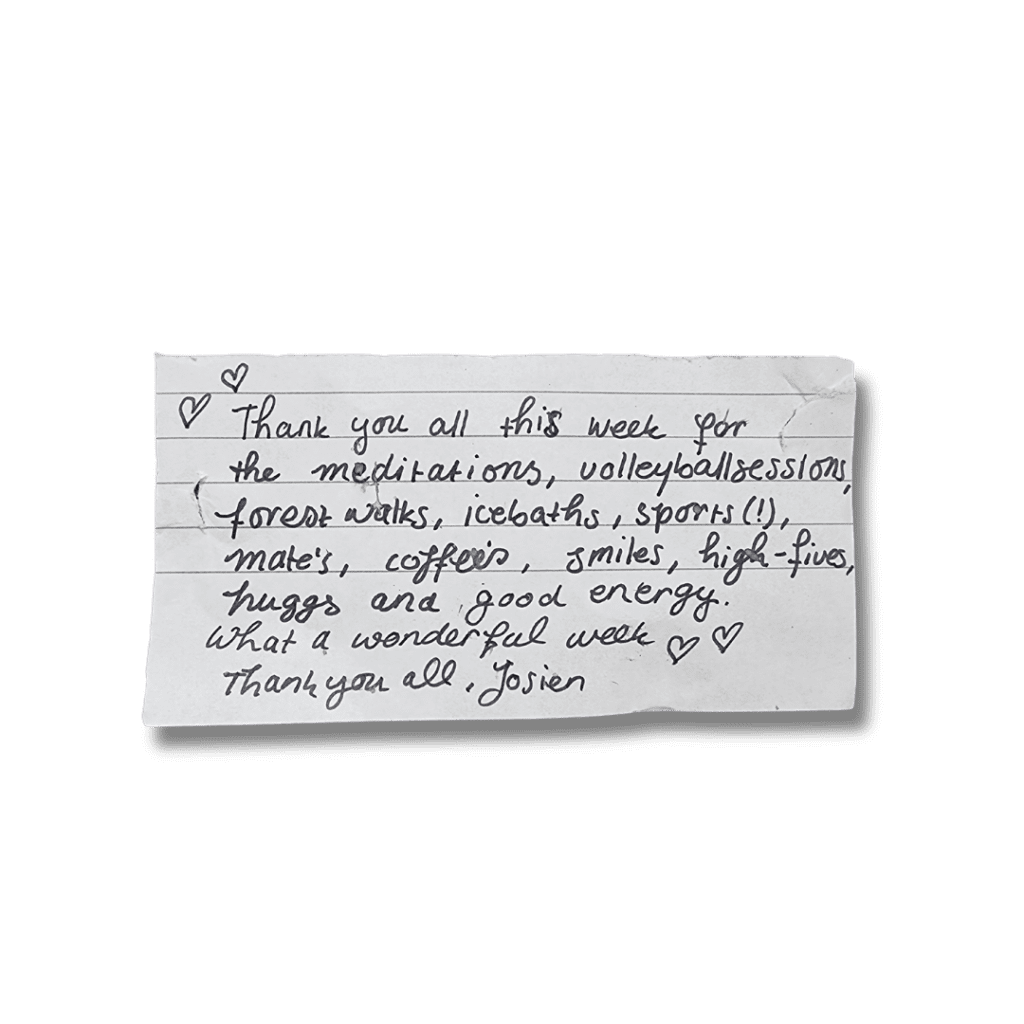 Thank you all this week for
the meditations, volleyballsessions,
forest walks, icebaths, sports(!),
mate's, coffeeis, smiles, high-fives,
huggs and good energy.
What a wonderful week ♡♡
Thank you all, Josien